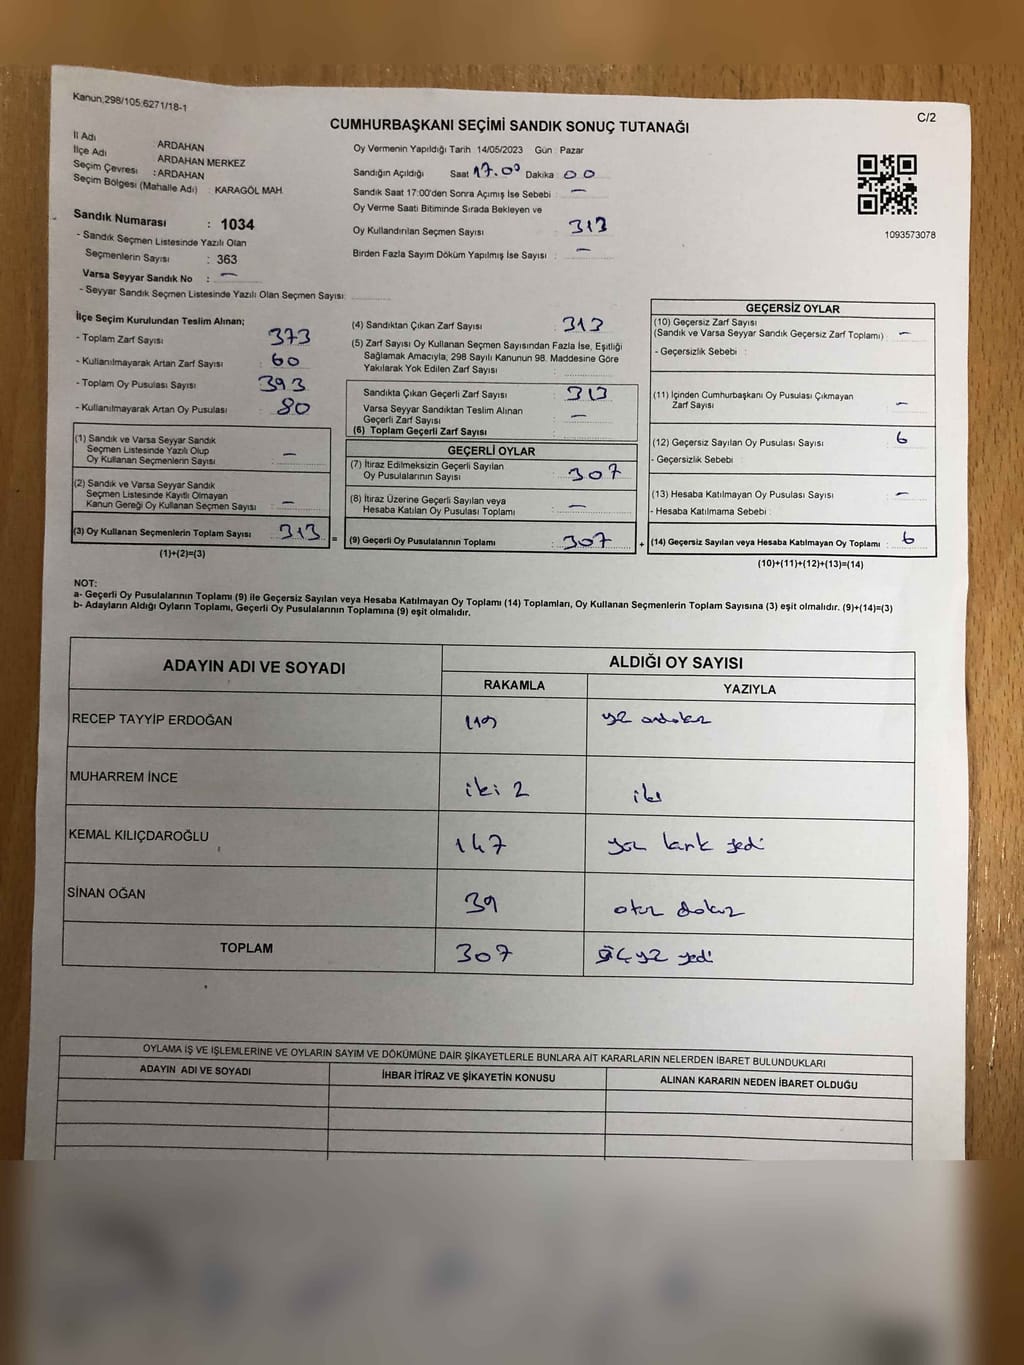 Kanun.298/105.6271/18-1
C/2
CUMHURBAŞKANI SEÇİMİ SANDIK SONUÇ TUTANAĞI
İl Adı ARDAHAN
İlçe Adı ARDAHAN MERKEZ
Seçim Çevresi : ARDAHAN
Seçim Bölgesi (Mahalle Adı) : KARAGÖL MAH.
Oy Vermenin Yapıldığı Tarih 14/05/2023 Gün : Pazar
Sandığın Açıldığı Saat 17.00 Dakika : 00
Sandık Saat 17:00'den Sonra Açımış İse Sebebi : –
Oy Verme Saati Bitiminde Sırada Bekleyen ve
Oy Kullandırılan Seçmen Sayısı : 313
Birden Fazla Sayım Döküm Yapılmış İse Sayısı : –
1093573078
Sandık Numarası : 1034
- Sandık Seçmen Listesinde Yazılı Olan
Seçmenlerin Sayısı : 363
Varsa Seyyar Sandık No : –
- Seyyar Sandık Seçmen Listesinde Yazılı Olan Seçmen Sayısı:
İlçe Seçim Kurulundan Teslim Alınan;
- Toplam Zarf Sayısı : 373
- Kullanılmayarak Artan Zarf Sayısı : 60
- Toplam Oy Pusulası Sayısı : 393
- Kullanılmayarak Artan Oy Pusulası : 80
(1) Sandık ve Varsa Seyyar Sandık
Seçmen Listesinde Yazılı Olup
Oy Kullanan Seçmenlerin Sayısı : –
(2) Sandık ve Varsa Seyyar Sandık
Seçmen Listesinde Kayıtlı Olmayan
Kanun Gereği Oy Kullanan Seçmen Sayısı : –
(3) Oy Kullanan Seçmenlerin Toplam Sayısı : 313 =
(1)+(2)=(3)
(4) Sandıktan Çıkan Zarf Sayısı : 313
(5) Zarf Sayısı Oy Kullanan Seçmen Sayısından Fazla İse, Eşitliği
Sağlamak Amacıyla, 298 Sayılı Kanunun 98. Maddesine Göre
Yakılarak Yok Edilen Zarf Sayısı :
Sandıkta Çıkan Geçerli Zarf Sayısı : 313
Varsa Seyyar Sandıktan Teslim Alınan
Geçerli Zarf Sayısı : –
(6) Toplam Geçerli Zarf Sayısı :
GEÇERLİ OYLAR
(7) İtiraz Edilmeksizin Geçerli Sayılan
Oy Pusulalarının Sayısı : 307
(8) İtiraz Üzerine Geçerli Sayılan veya
Hesaba Katılan Oy Pusulası Toplamı : –
(9) Geçerli Oy Pusulalarının Toplamı : 307 +
GEÇERSİZ OYLAR
(10) Geçersiz Zarf Sayısı
(Sandık ve Varsa Seyyar Sandık Geçersiz Zarf Toplamı) : –
- Geçersizlik Sebebi :
(11) İçinden Cumhurbaşkanı Oy Pusulası Çıkmayan
Zarf Sayısı : –
(12) Geçersiz Sayılan Oy Pusulası Sayısı : 6
- Geçersizlik Sebebi :
(13) Hesaba Katılmayan Oy Pusulası Sayısı : –
- Hesaba Katılmama Sebebi :
(14) Geçersiz Sayılan veya Hesaba Katılmayan Oy Toplamı : 6
(10)+(11)+(12)+(13)=(14)
NOT:
a- Geçerli Oy Pusulalarının Toplamı (9) ile Geçersiz Sayılan veya Hesaba Katılmayan Oy Toplamı (14) Toplamları, Oy Kullanan Seçmenlerin Toplam Sayısına (3) eşit olmalıdır. (9)+(14)=(3)
b- Adayların Aldığı Oyların Toplamı, Geçerli Oy Pusulalarının Toplamına (9) eşit olmalıdır.
ADAYIN ADI VE SOYADI ALDIĞI OY SAYISI
RAKAMLA YAZIYLA
RECEP TAYYİP ERDOĞAN 119 yüz ondokuz
MUHARREM İNCE iki 2 iki
KEMAL KILIÇDAROĞLU 147 yüz kırk yedi
SİNAN OĞAN 39 otuz dokuz
TOPLAM 307 üçyüz yedi
OYLAMA İŞ VE İŞLEMLERİNE VE OYLARIN SAYIM VE DÖKÜMÜNE DAİR ŞİKAYETLERLE BUNLARA AİT KARARLARIN NELERDEN İBARET BULUNDUKLARI
ADAYIN ADI VE SOYADI İHBAR İTİRAZ VE ŞİKAYETİN KONUSU ALINAN KARARIN NEDEN İBARET OLDUĞU